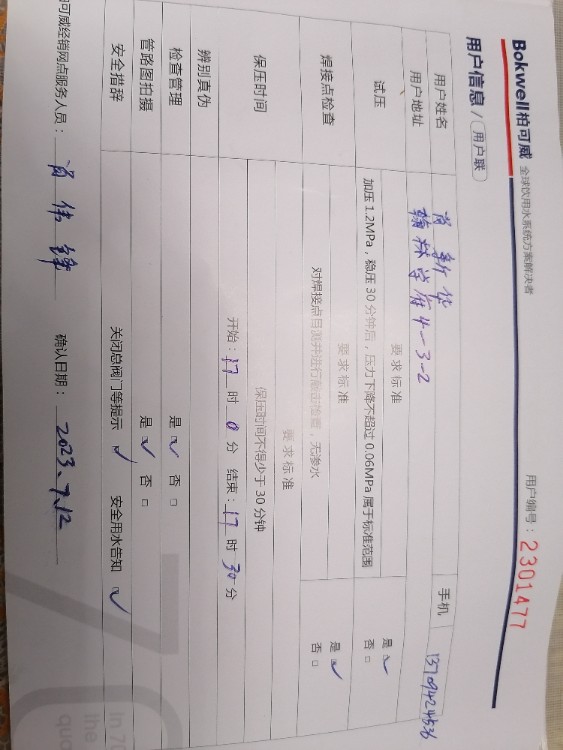 Bokwell柏可威 全球饮用水系统方案解决者
用户编号：2301477
用户信息 / 用户联
用户姓名 肖新华 手机 13709424536
用户地址 翰林学府4-3-2
试压 要求标准
加压1.2MPa，稳压30分钟后，压力下降不超过0.06MPa属于标准范围
是 ✓
否 □
焊接点检查 要求标准
对焊接点目测并进行敲击检查，无渗水
是 ✓
否 □
保压时间 要求标准
保压时间不得少于30分钟
开始：17时0分 结束：17时30分
辨别真伪
检查管理 是 ✓ 否 □
管路图拍摄 是 ✓ 否 □
安全措辞 关闭总阀门等提示 ✓ 安全用水告知 ✓
可威经销网点服务人员：肖伟锋 确认日期：2023.7.12
In 70
the
qua